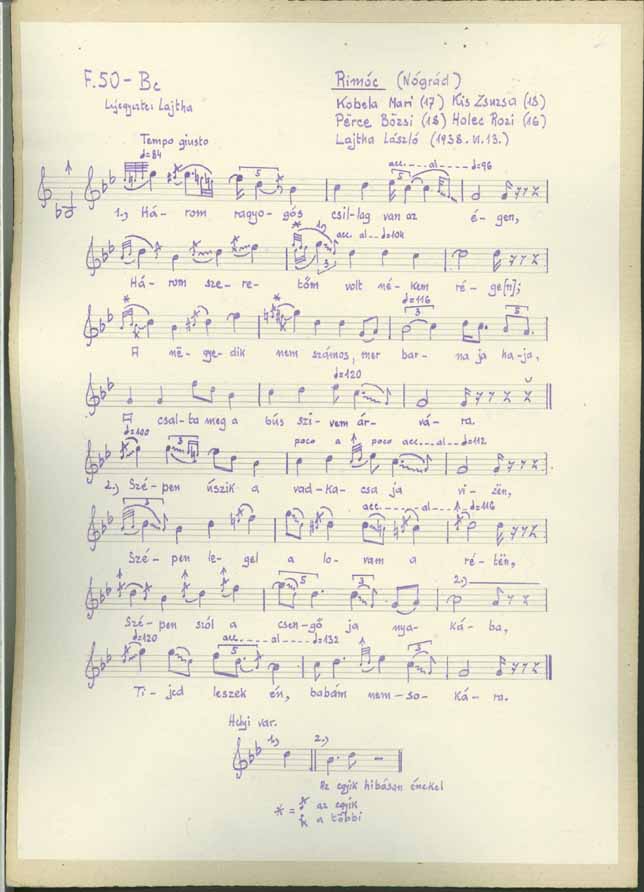 F.50 - Bc
Lejegyezte: Lajtha
Rimóc (Nógrád)
Kobela Mari (17) Kis Zsuzsa (15)
Përce Bözsi (18) Holec Rozi (16)
Lajtha László (1938. VI. 13.)
Tempo giusto
♩=84
5
acc. ... al ... ♩=96
5
1.) Há- rom ragyo- gós csil- lag van az é- gen,
1.)
acc. al ... ♩=104
3
Há- rom sze- re- tőm volt né- kem ré- ge[n];
♩=116
3
5
A në- gye- dik nem számos, mer bar- na ja haja,
♩=120
A csal-ta meg a bús szi- vem ár- vá- ra.
♩=100
3
poco a poco acc. ... al ... ♩=112
2.) Szé- pen úszik a vad-ka- csa ja vi- zën,
3
acc. ... al ... ♩=116
Szé- pen le- gel a lo- vam a ré- tën,
5
3
2.)
Szé- pen szól a csen- gő ja nya- ká- ba,
♩=120
acc. ... al ... ♩=132
5
3
Ti- jed leszek én, babám nem-so- ká- ra.
Helyi var.
1.) 2.)
Az egyik hibásan énekel
* = az egyik
a többi